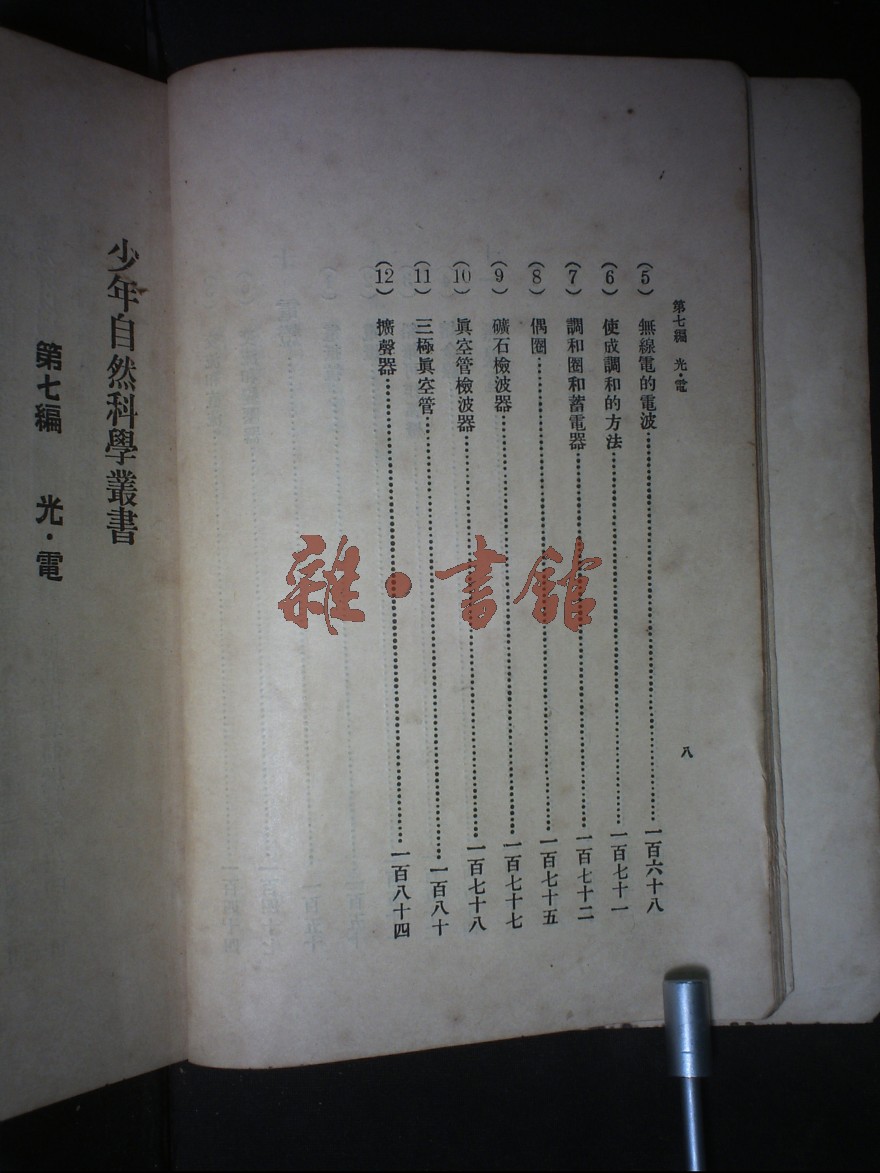 第七編 光·電
八
(5) 無線電的電波……一百六十八
(6) 使成調和的方法……一百七十一
(7) 調和圈和蓄電器……一百七十二
(8) 偶圈……一百七十五
(9) 礦石檢波器……一百七十七
(10) 眞空管檢波器……一百七十八
(11) 三極眞空管……一百八十
(12) 擴聲器……一百八十四
少年自然科學叢書
第七編 光·電
雜·書館